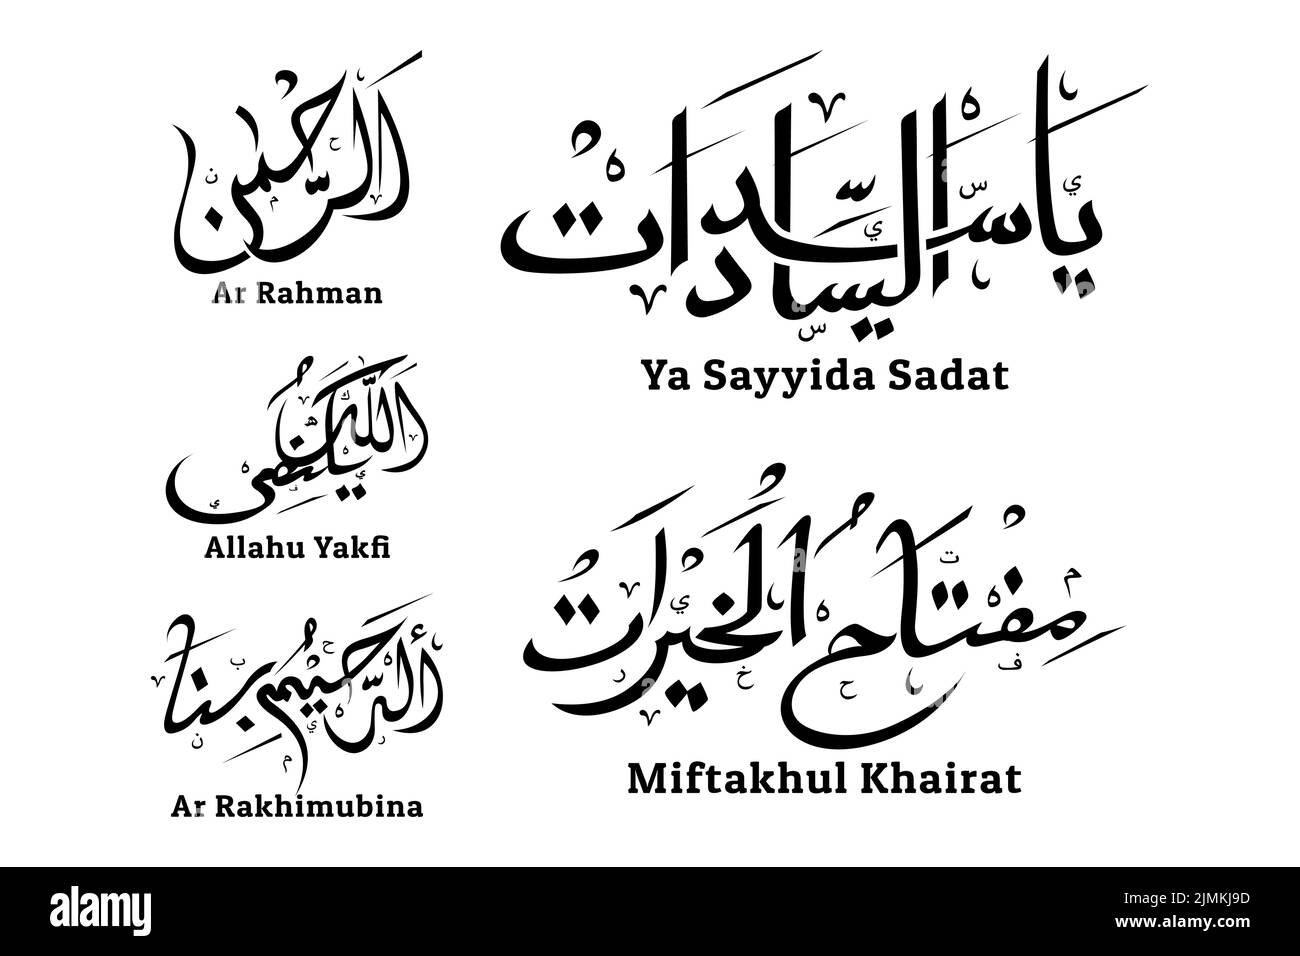 الرحمن
Ar Rahman
الله يكفي
Allahu Yakfi
الرحيم بنا
Ar Rakhimubina
يا سيد السادات
Ya Sayyida Sadat
مِفْتَاحُ الْخَيْرَاتْ
Miftakhul Khairat
alamy
Image ID: 2JMKJ9D
www.alamy.com